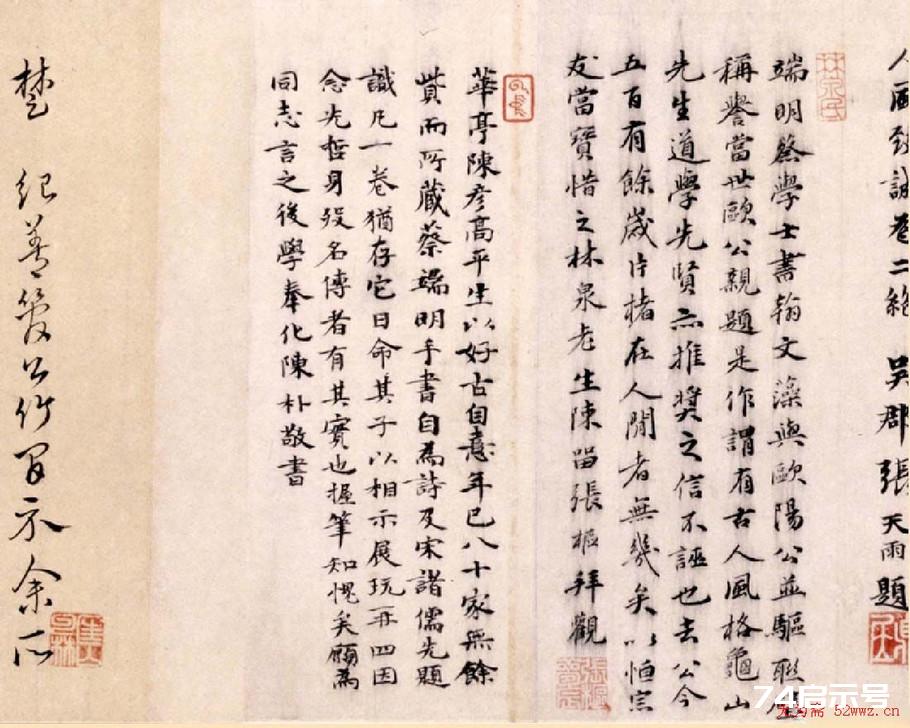 人風致誠卷二絕 吳郡張天雨題
端明蔡學士書翰文藻與歐陽公並驅聯
稱譽當世歐公親題是作謂有古人風格龜山
先生道學先賢亦推奨之信不誣也去公今
五百有餘歲片楮在人閒者無幾矣以恒宗
友當寶惜之林泉老生陳留張樞拜觀
華亭陳彥高平生以好古自意年已八十家無餘
貲而所藏蔡端明手書自為詩及宋諸儒先題
識凡一卷猶存它日命其子以相示展玩再四因
念先哲身歿名傳者有其實也握筆知愧矣願為
同志言之後學奉化陳朴敬書
楚 紀善篆公竹 示余所
74启示号
52wwz.cn